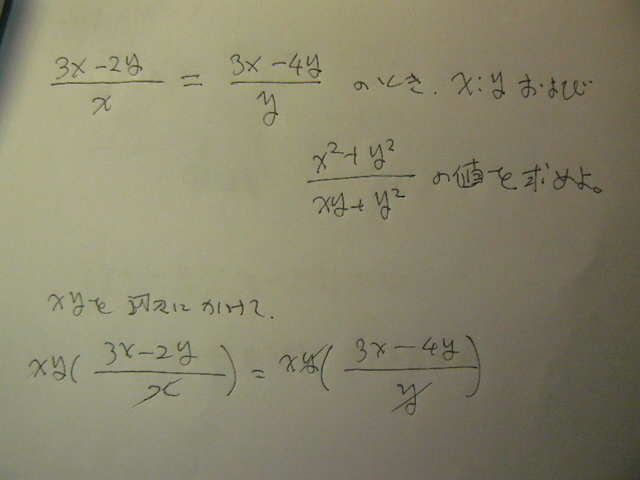 (3x-2y)/x = (3x-4y)/y のとき、x:y および
(x²+y²)/(xy+y²) の値を求めよ。
xyを両辺にかけて、
xy((3x-2y)/x) = xy((3x-4y)/y)